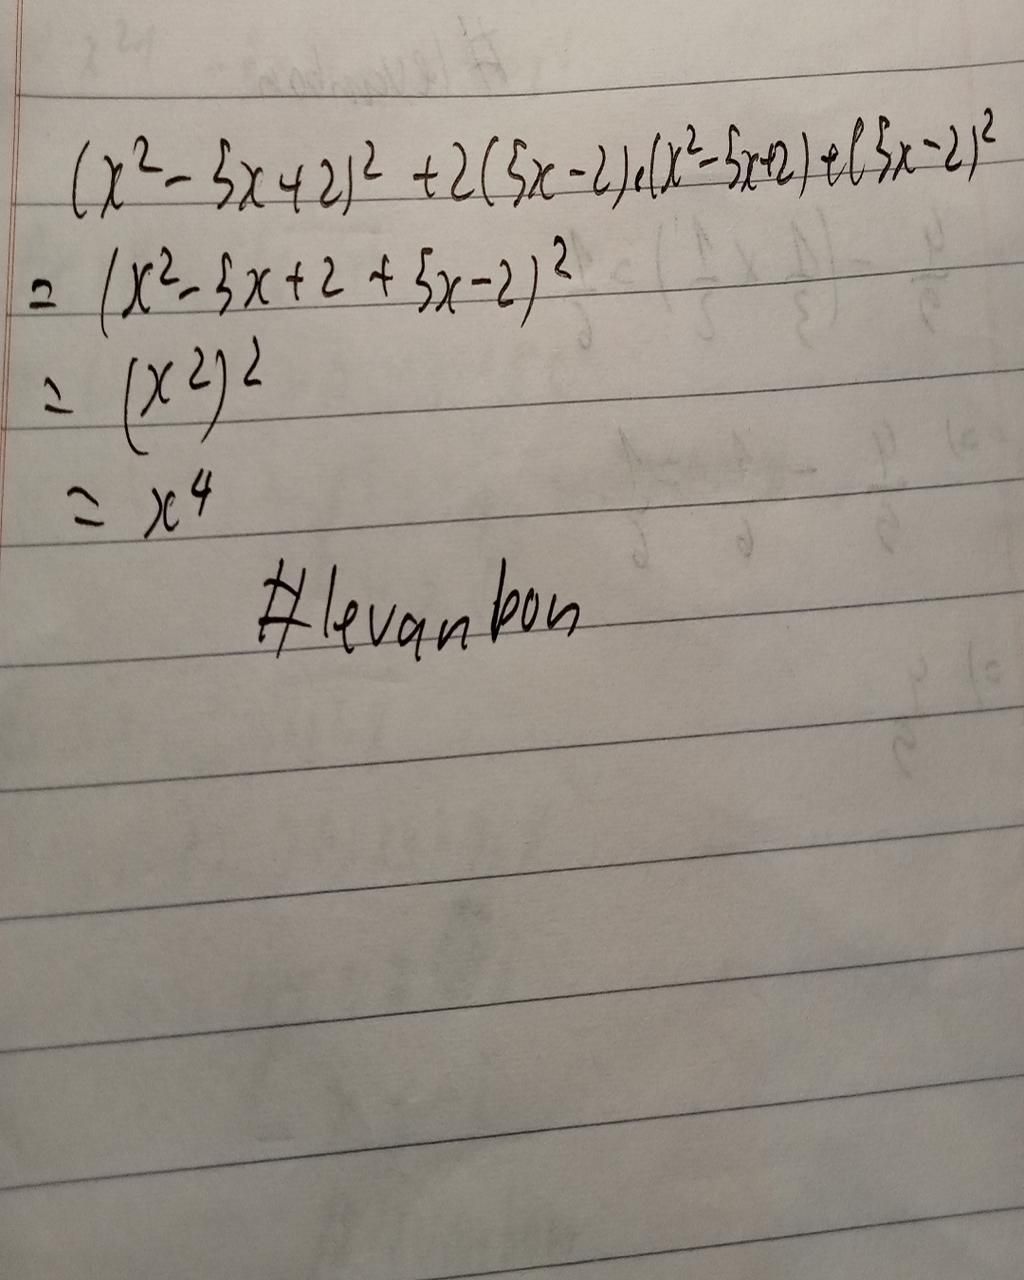 (x² - 5x + 2)² + 2(5x - 2).(x² - 5x + 2) + (5x - 2)²
= (x² - 5x + 2 + 5x - 2)²
= (x²)²
= x⁴
#levanbon